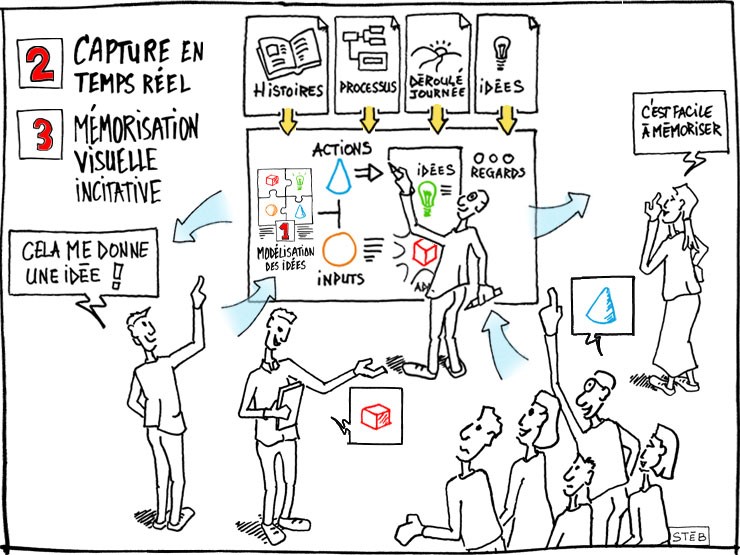 2 CAPTURE EN
TEMPS RÉEL
3 MÉMORISATION
VISUELLE
INCITATIVE
HISTOIRES
PROCESSUS
DÉROULÉ
JOURNÉE
IDÉES
ACTIONS
IDÉES
REGARDS
1
MODÉLISATION
DES IDÉES
INPUTS
C'EST FACILE
À MÉMORISER
CELA ME DONNE
UNE IDÉE !
STÉB